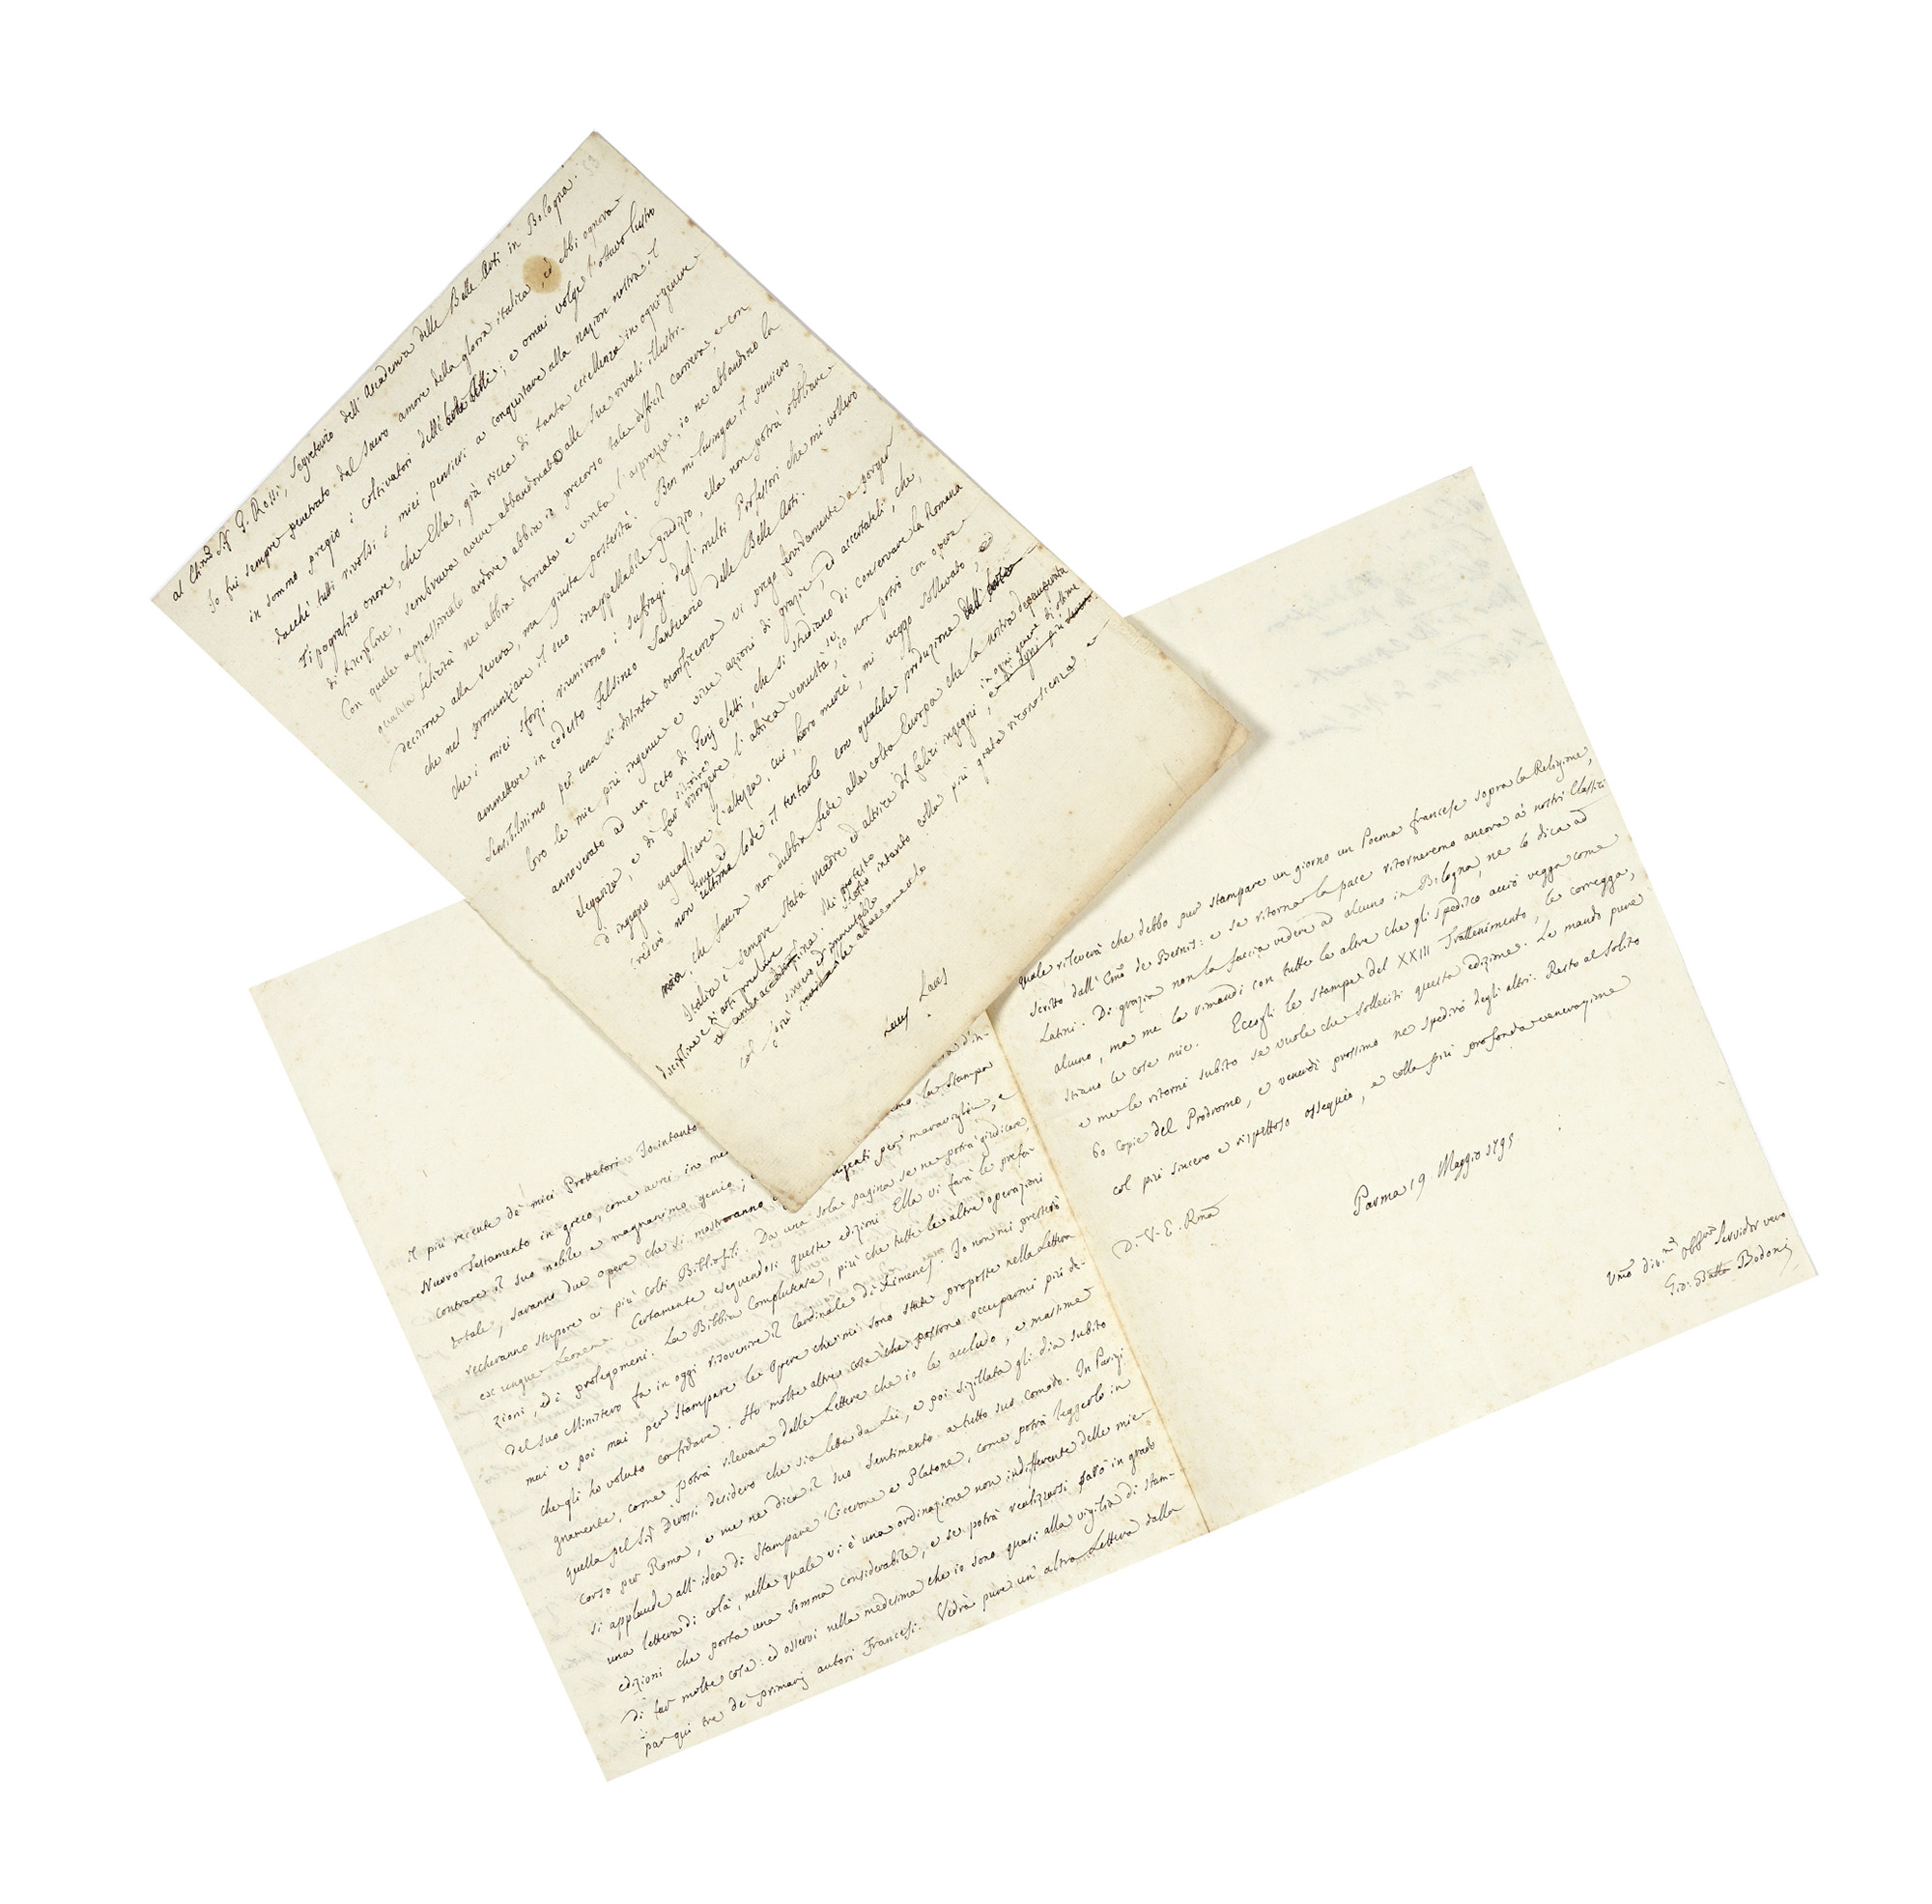 al Chmo Sig. G. Rossi, Segretario dell'Accademia delle Belle Arti in Bologna.
Io fui sempre penetrato dal sacro amore della gloria italica, ed ebbi ognora
in sommo pregio i coltivatori dell' Arti; e omai volge l'ottavo lustro
dacchè tutti rivolsi i miei pensieri a conquistare alla nazion nostra il
Tipografico onore, che Ella, già ricca di tanta eccellenza in ogni genere
di discipline, sembrava avere abbandonato alle sue rivali illustri.
Con quale appassionato ardore abbia io percorso tale difficil carriera, e con
quanta felicità ne abbia domata e vinta l'asprezza, io ne abbandono la
decisione alla severa, ma giusta posterità. Ben mi lusinga il pensiero
che nel pronunziare il suo inappellabile giudizio, ella non potrà obbliare
che i miei sforzi riunirono i suffragi degl' incliti Professori che mi vollero
ammettere in codesto Felsineo Santuario delle Belle Arti.
Sensibilissimo per una sì distinta onorificenza vi prego fervidamente a porger
loro le mie più ingenue e vive azioni di grazie, ed accertateli, che,
annoverato ad un ceto di Genj eletti, che si studiano di conservare la Romana
eleganza, e di far risorgere l'attica venustà, se io non potrò con opere
d'ingegno uguagliare l'altezza, cui, loro mercè, mi veggo sollevato,
crederò non ultima lode il tentarlo con qualche produzione dell'
mia, che faccia non dubbia fede alla colta Europa che la nostra
Italia è sempre stata madre ed altrice di felici ingegni, in ogni genere di ottime
discipline e di arti preclare. Mi protesto intanto colla più grata riconoscenza e
col più sincero ed immutabile
Laus
Laus
il più recente de' miei Protettori. Io intanto
Nuovo Testamento in greco, come avrei in me
contrare il suo nobile e magnanimo genio,
totale, saranno due opere che si mostreranno per maraviglia, e
recheranno stupore ai più colti Bibliofili. Da una sola pagina se ne potrà giudicare
ex ungue Leonem. Certamente eseguendosi queste edizioni Ella vi farà le prefa-
zioni, ed i prolegomeni. La Bibbia Complutense, più che tutte le altre operazioni
del suo Ministero fa in oggi risovenire il Cardinale di Ximenes. Io non mi presterò
mai e poi mai per stampare le Opere che mi sono state proposte nella Lettera
che gli ho voluto confidare. Ho molte altre cose che possono occuparmi più de-
gnamente, come potrà rilevare dalle Lettere che io le accludo, e massime
quella pel Sig. desidero che sia letta da Lei, e poi sigillata gli dia subito
corso per Roma, e me ne dica il suo sentimento a tutto suo comodo. In Parigi
si applaude all'idea di stampare Cicerone e Platone, come potrà leggerlo in
una lettera di colà, nella quale vi è una ordinazione non indifferente delle mie
edizioni che porta una somma considerabile, e se potrà realizzarsi sarò in grado
di far molte cose: ed osservi nella medesima che io sono quasi alla vigilia di stam-
par qui tre de' primarj autori Francesi. Vedrà pure un' altra Lettera dalla
quale rileverà che debbo pur stampare un giorno un Poema francese sopra la Religione,
scritto dall' Emo de Bernis: e se ritorna la pace ritorneremo ancora a' nostri Classici
Latini. Di grazia non la faccia vedere ad alcuno in Bologna, ne lo dica ad
alcuno, ma me la rimandi con tutte le altre che gli spedisco acciò vegga come
stiano le cose mie. Eccogli le stampe del XXIII Trattenimento, le corregga,
e me le ritorni subito se vuole che solleciti questa edizione. Le mando pure
60 copie del Prodromo, e venerdì prossimo ne spedirò degli altri. Resto al solito
col più sincero e rispettoso ossequio, e colla più profonda venerazione
D. V. E. Rma
Parma 19 Maggio 1795
Umo div.mo obb.mo Servidor vero
Gio: Batta Bodoni